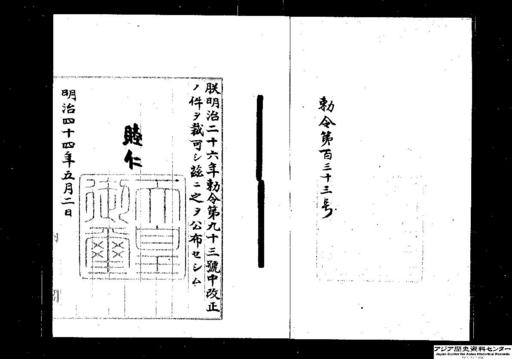 勅令第百三十三号
朕明治二十六年勅令第九十三號中改正
ノ件ヲ裁可シ茲ニ之ヲ公布セシム
睦仁
天皇
御璽
明治四十四年五月二日
アジア歴史資料センター
Japan Center for Asian Historical Records